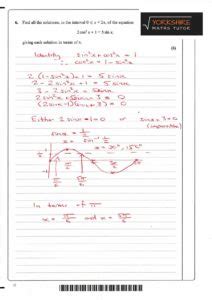 YORKSHIRE
MATHS TUTOR
6. Find all the solutions, in the interval 0 ≤ x < 2π, of the equation
2 cos² x + 1 = 5 sin x,
giving each solution in terms of π.
(6)
Identity sin²x + cos²x = 1
∴ cos²x = 1 - sin²x
2(1 - sin²x) + 1 = 5 sinx
2 - 2sin²x + 1 = 5 sinx
3 - 2sin²x = 5sinx
2sin²x + 5sinx - 3 = 0
(2sinx - 1)(sinx + 3) = 0
Either 2sinx - 1 = 0 or sinx + 3 = 0
(impossible)
sinx = 1/2
x = 30°, 150°
In terms of π
x = π/6 and x = 5π/6